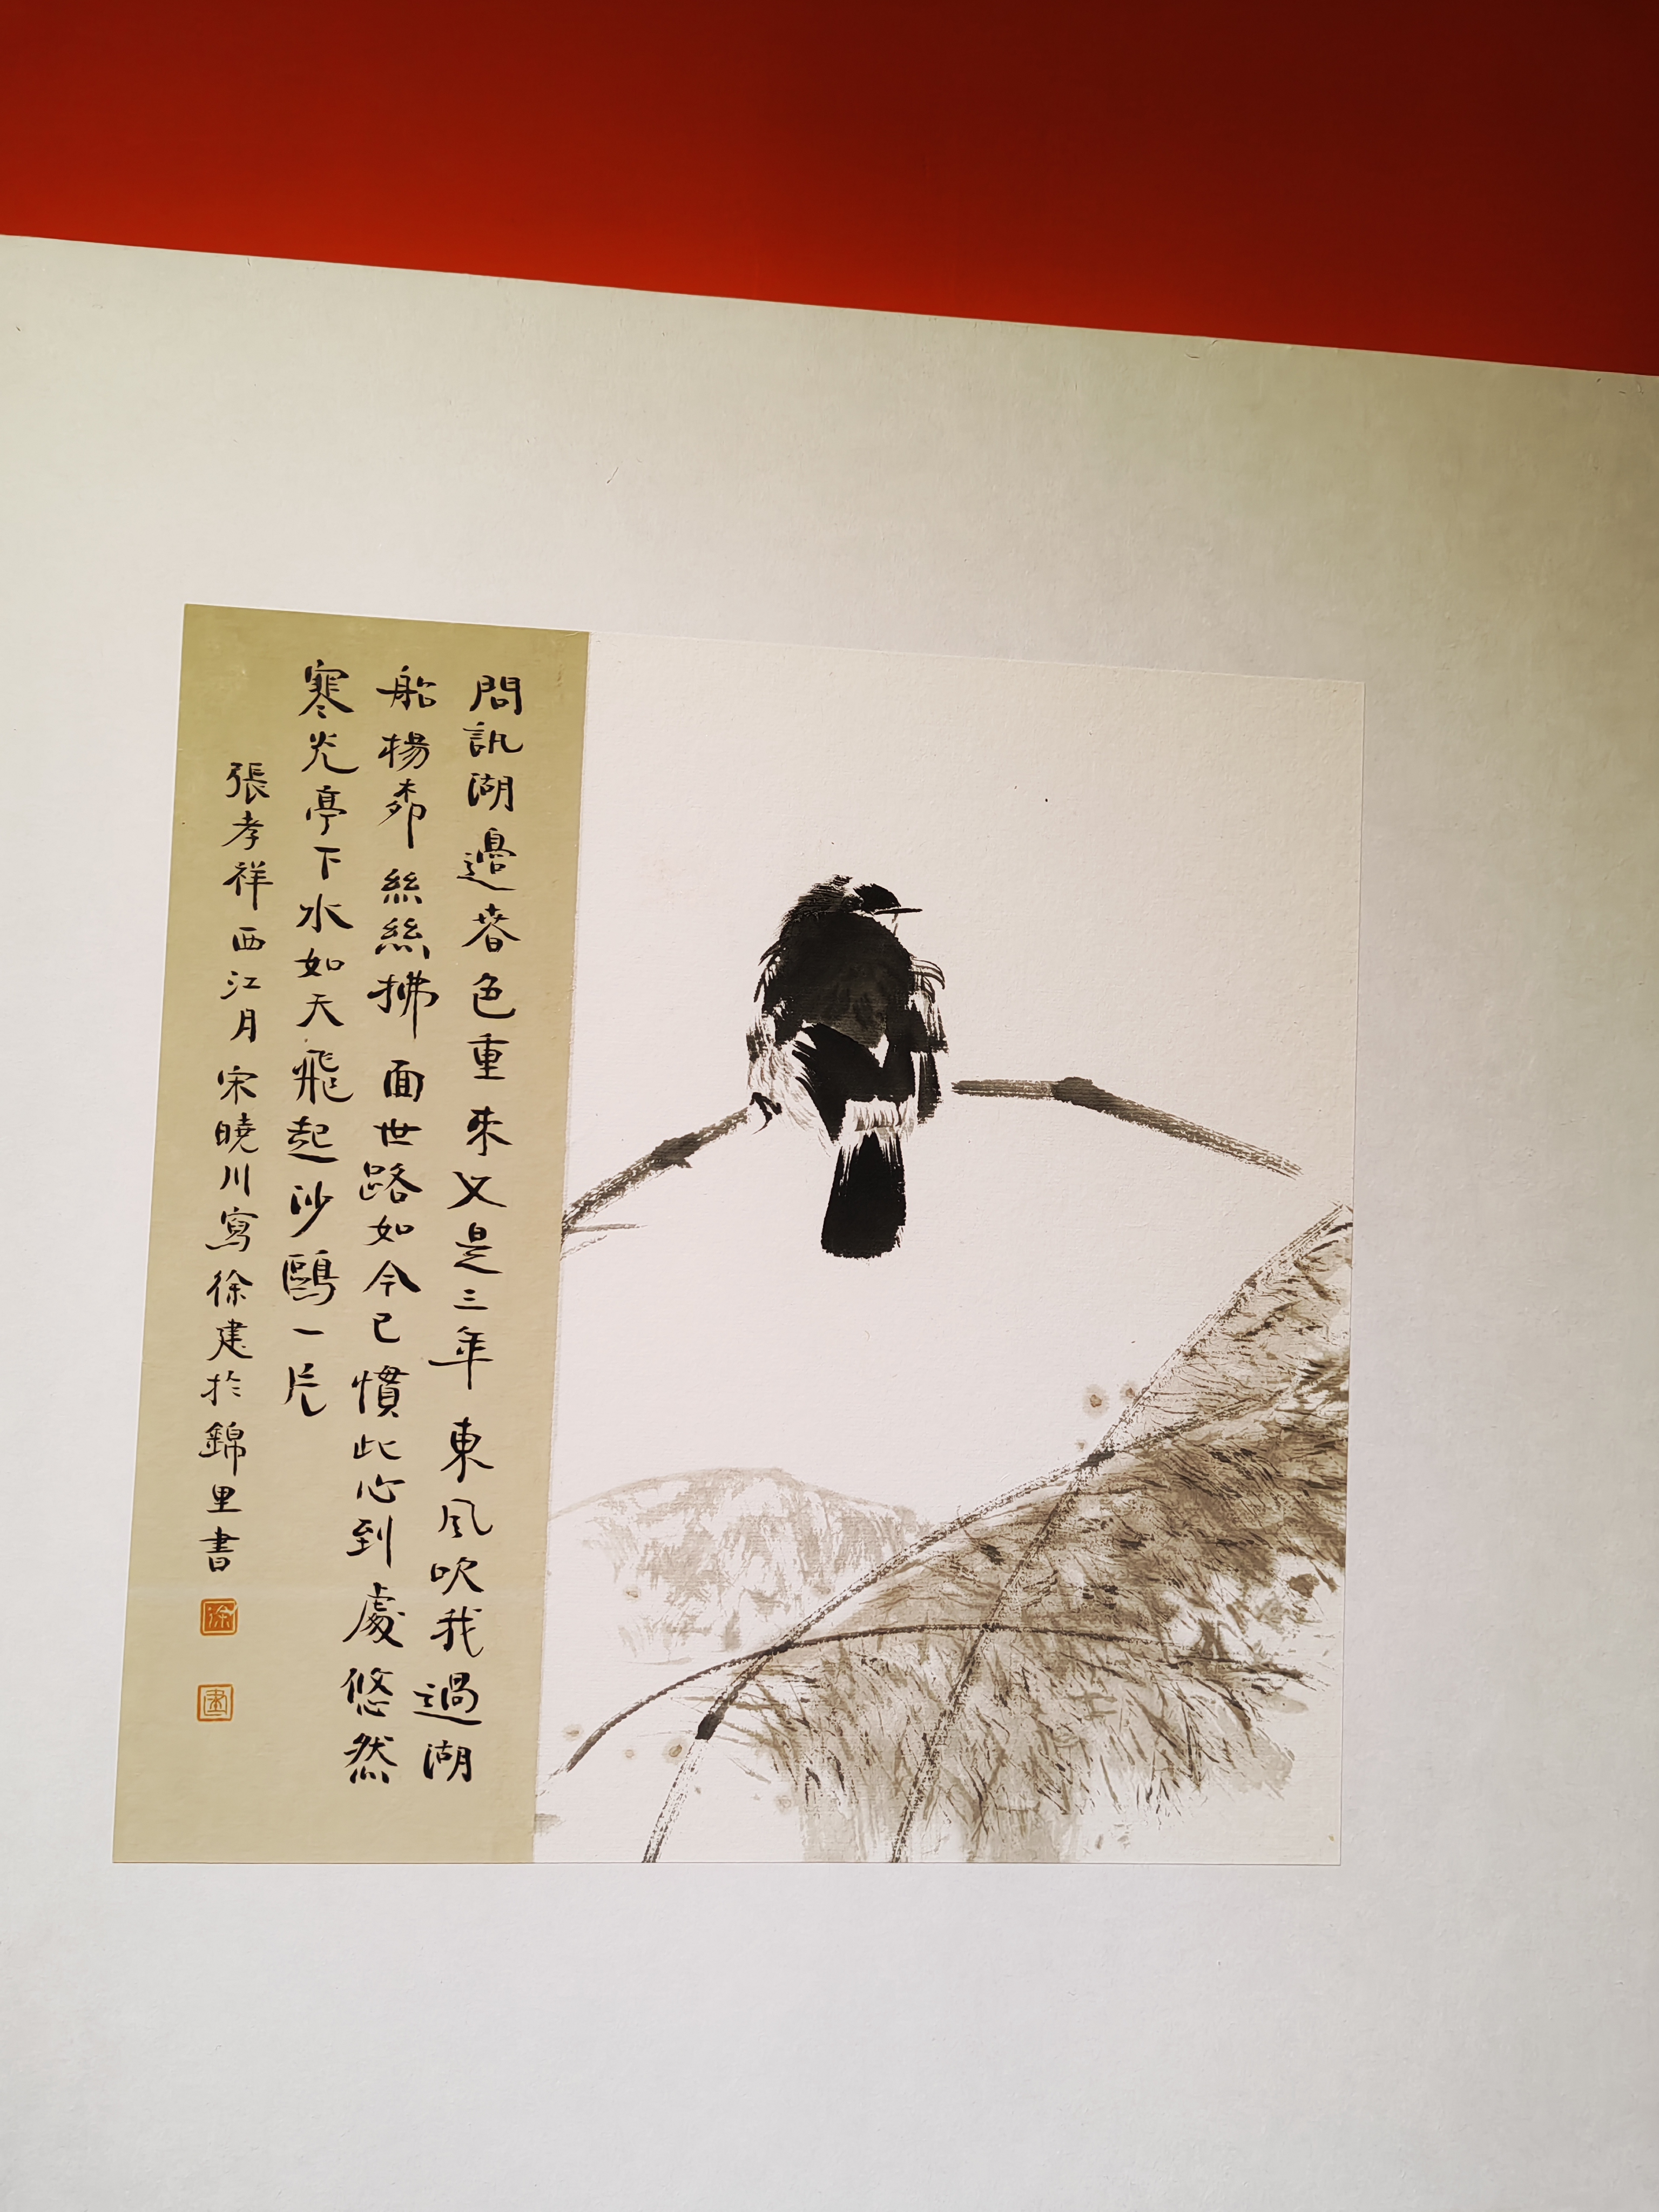 問訊湖邊春色重來又是三年東風吹我過湖
船楊桺絲絲拂面世路如今已慣此心到處悠然
寒光亭下水如天飛起沙鷗一片
張孝祥西江月宋曉川寫徐建於錦里書
徐
建